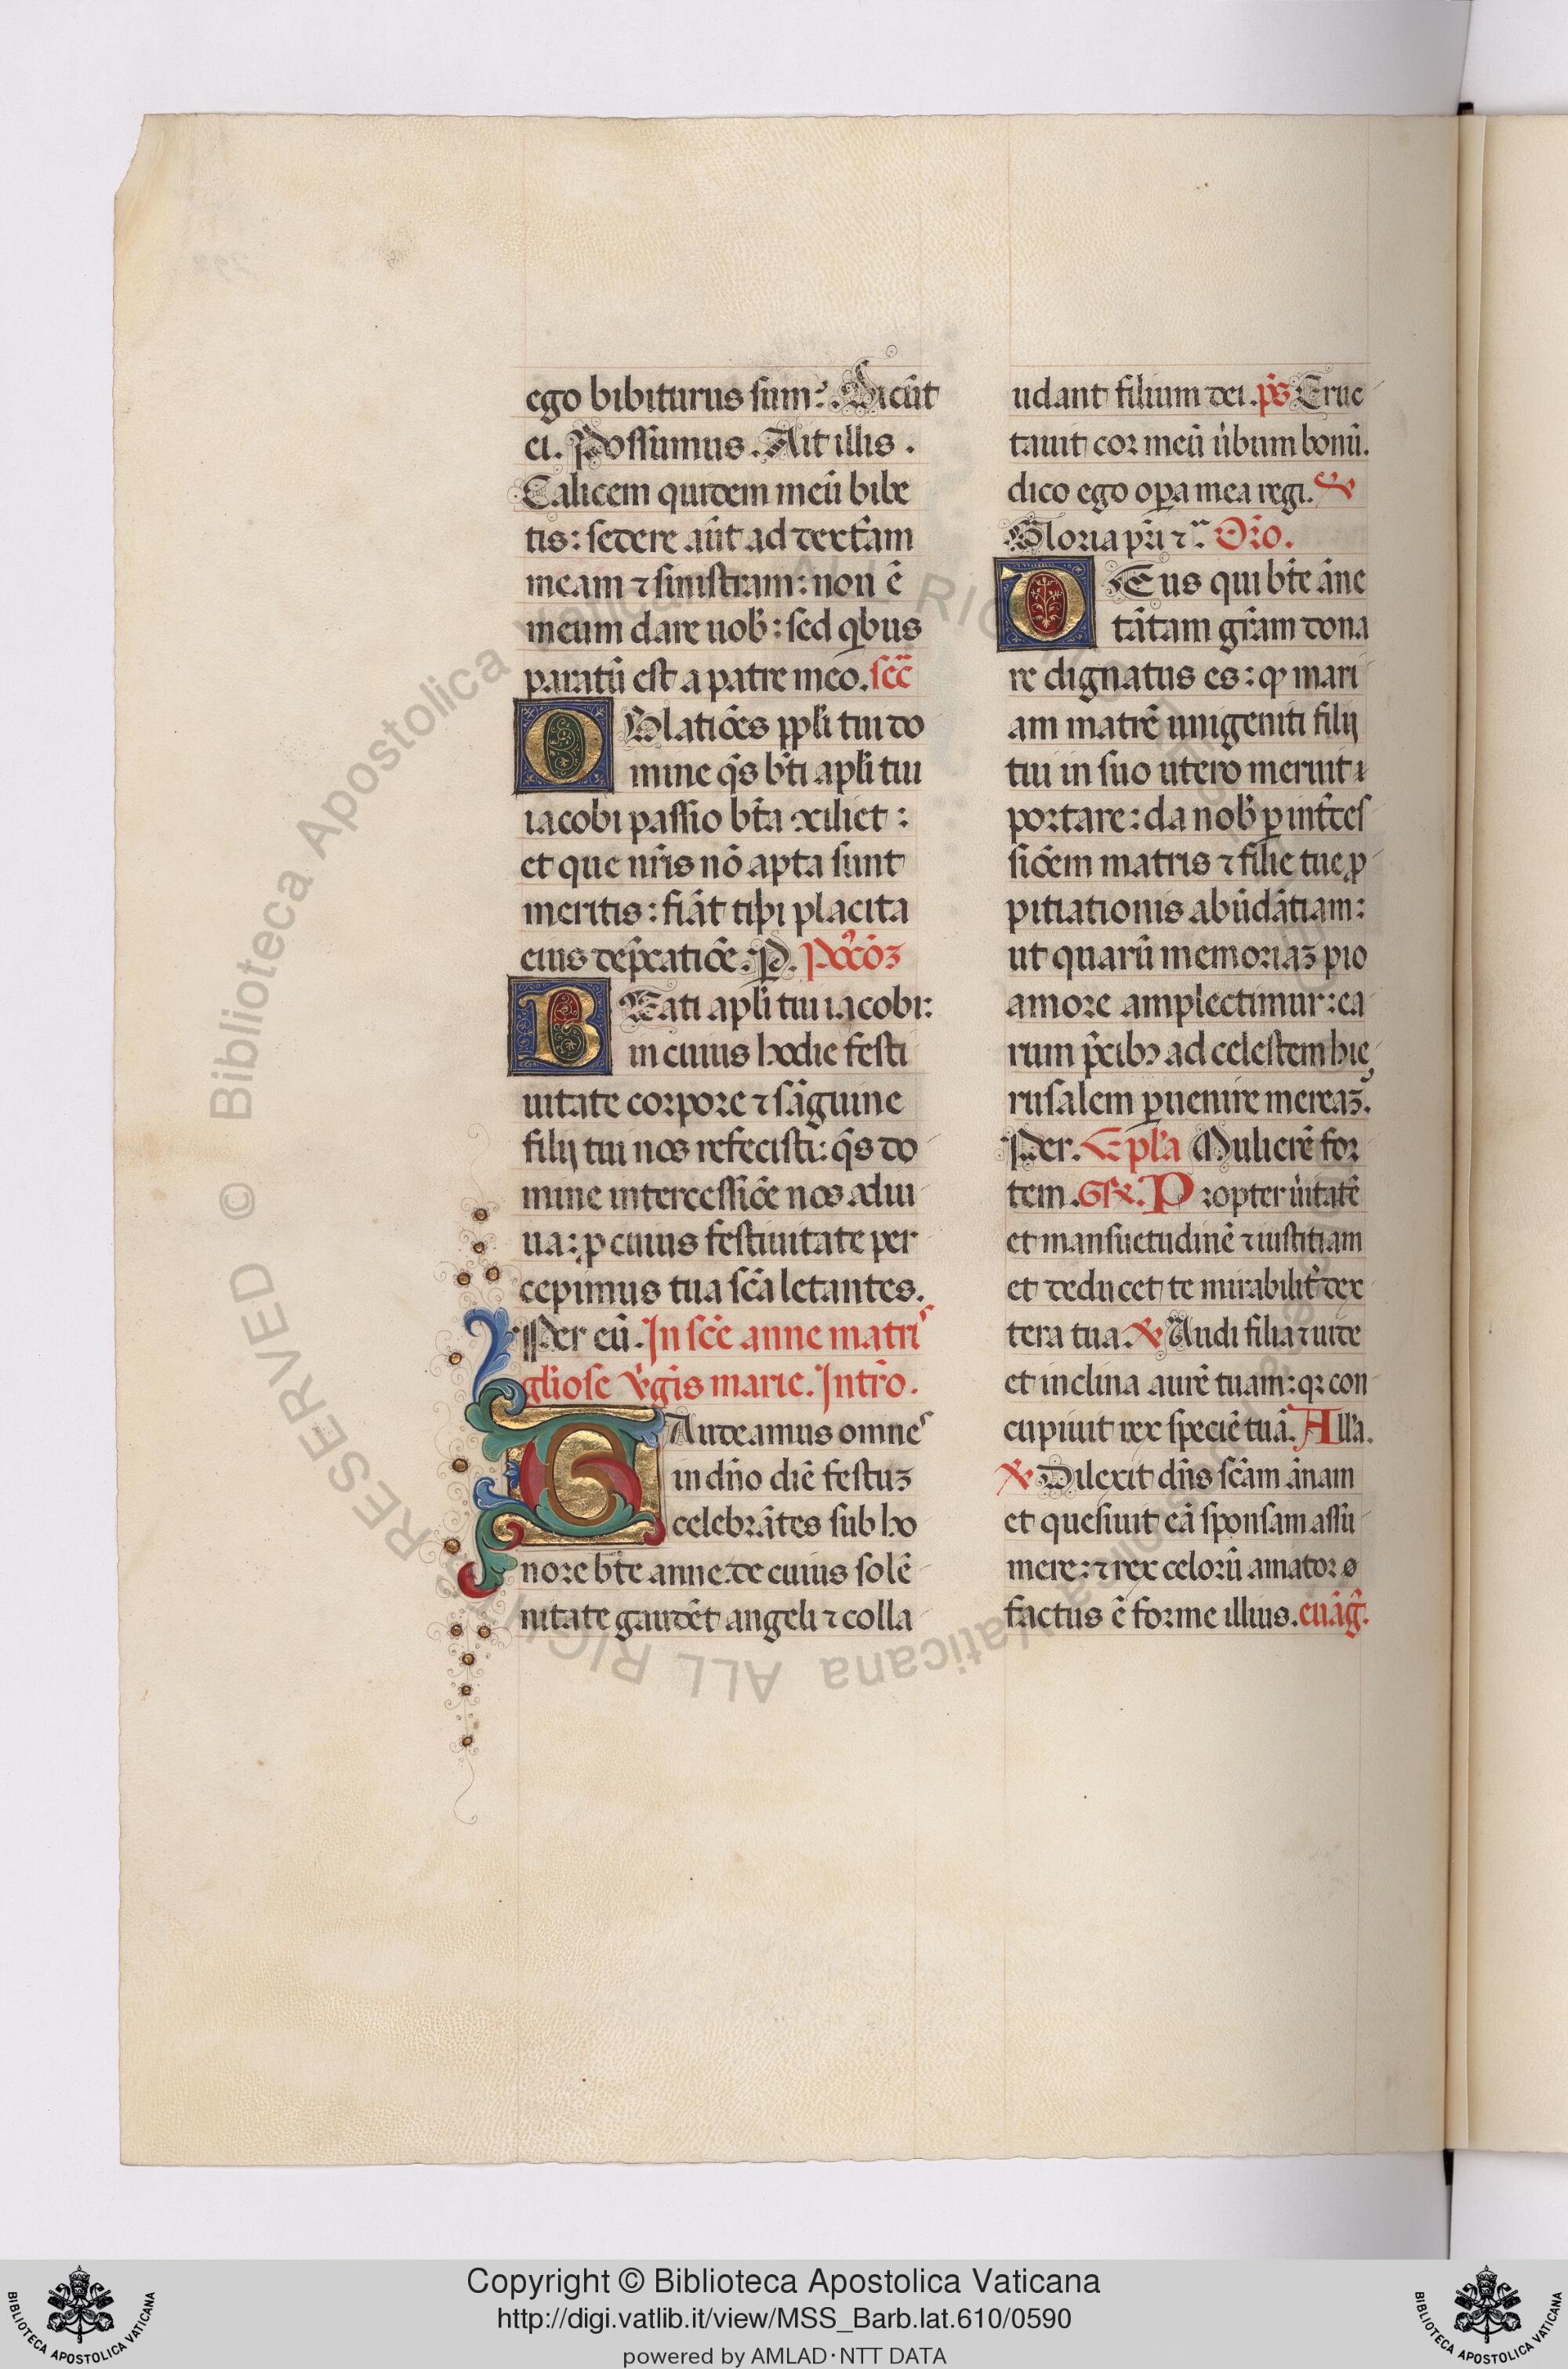 ego bibiturus sum? Dicūt
ei. Possumus. Ait illis.
Calicem quidem meū bibe
tis: sedere aūt ad dext̄am
meam ⁊ sinistram: non ē
meum dare uob̄: sed qͥbus
paratū est a patre meo. sec̄
OBlatiōēs ppl̄i tui do
mine q̄s bt̄i apl̄i tui
iacobi passio bt̄a ↄciliet:
et que nr̄is nō apta sunt
meritis: fiāt tibi placita
eius dep̄catiōe. P. Poↄ̄cōꝫ
BEati apl̄i tui iacobi:
in cuius hodie festi
uitate corpore ⁊ sāguine
filij tui nos refecisti: q̄s do
mine intercessiōe nos adiu
ua: ꝓ cuius festiuitate per
cepimus tua sc̄a letantes.
Per eū. In sc̄e anne matris
gl̄iose v̄gīs marie. Intr̄o.
GAudeamus omnes
in dn̄o diē festuꝫ
celebrātes sub ho
nore bt̄e anne. de cuius solē
nitate gaudēt angeli ⁊ colla
udant filium dei. p̄s Eruc
tauit cor meū ūbum bonū.
dico ego oꝑa mea regi. ℣
Gloria pr̄i ⁊ Or̄o.
DEus qui bt̄e āne
tātam gr̄am dona
re dignatus es: ꝙ mari
am matrē unigeniti filij
tui in suo utero meruit
portare: da nob̄ ꝑ int̄ces
siōēm matris ⁊ filie tue ꝓ
pitiationis abūdātiam:
ut quarū memoriaꝫ pio
amore amplectimur: ea
rum p̄cibꝰ ad celestem hie
rusalem ꝑuenire mereaꝫ.
Per. Epl̄a Mulierē for
tem. Gr̄. Propter ūitatē
et mansuetudinē ⁊ iustitiam
et deducet te mirabilit̄ dex
tera tua. ℣ Audi filia ⁊ uide
et inclina aurē tuam: qꝛ con
cupiuit rex speciē tuā. All̄a.
℣ Dilexit dn̄s sc̄am ānam
et quesiuit eā sponsam assu
mere: ⁊ rex celorū amator
factus ē forme illius. euāḡ.
© Biblioteca Apostolica Vaticana ALL RIGHTS RESERVED
Copyright © Biblioteca Apostolica Vaticana
http://digi.vatlib.it/view/MSS_Barb.lat.610/0590
powered by AMLAD·NTT DATA
BIBLIOTECA APOSTOLICA VATICANA
BIBLIOTECA APOSTOLICA VATICANA